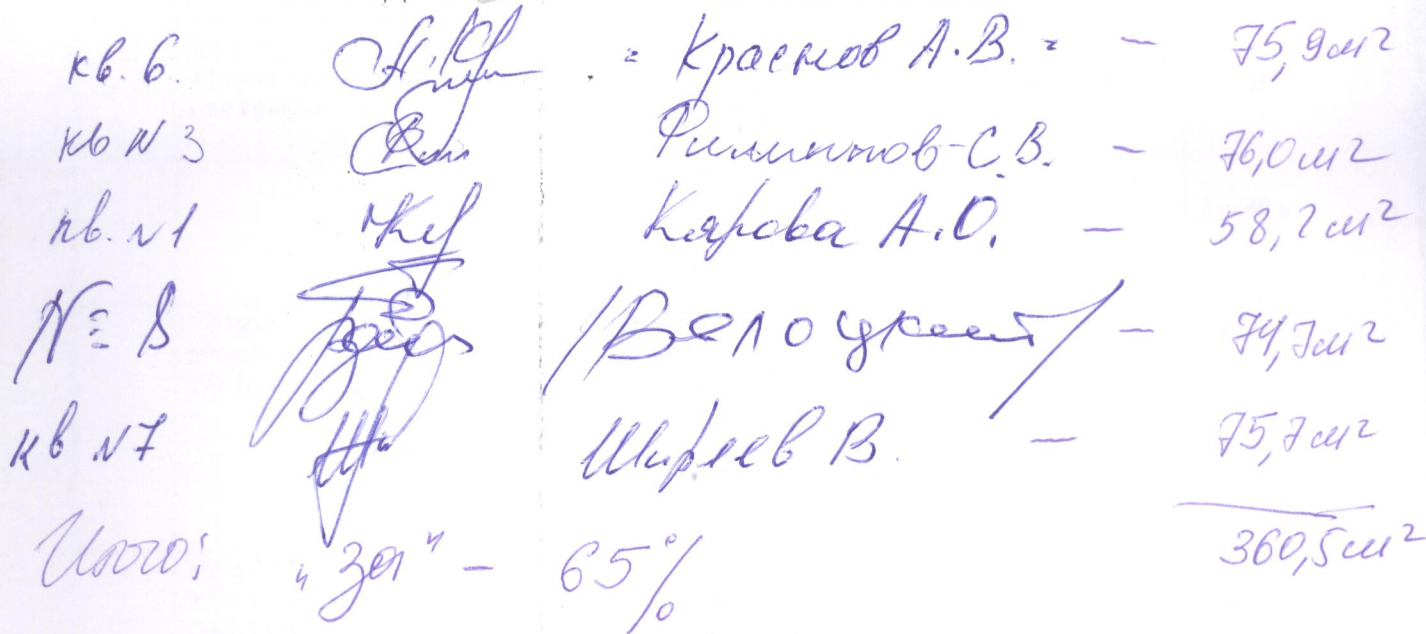 кв. 6. "Краснов А.В." - 75,9 м²
кв N 3 Филиппов С.В. - 76,0 м²
кв. N1 Карова А.О. - 58,2 м²
№ 8 /Белоцкий/ - 74,7 м²
кв N7 Ширяев В. - 75,7 м²
Итого: "За" - 65% 360,5 м²